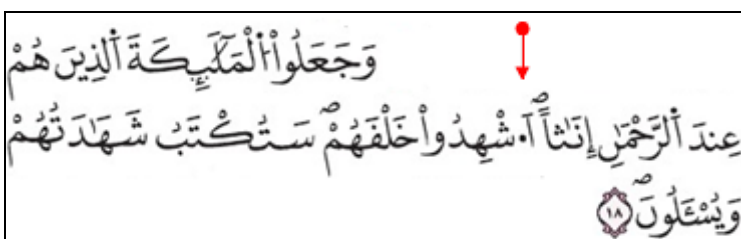 وَجَعَلُواْ اُ۬لْمَلَٰٓئِكَةَ اَ۬لذِينَ هُمْ
عِندَ اَ۬لرَّحْمَٰنِ إِنَٰثاًۖ آ۟شْهِدُواْ خَلْقَهُمْۖ سَتُكْتَبُ شَهَٰدَتُهُمْ
وَيُسْـَٔلُونَۖ ١٨